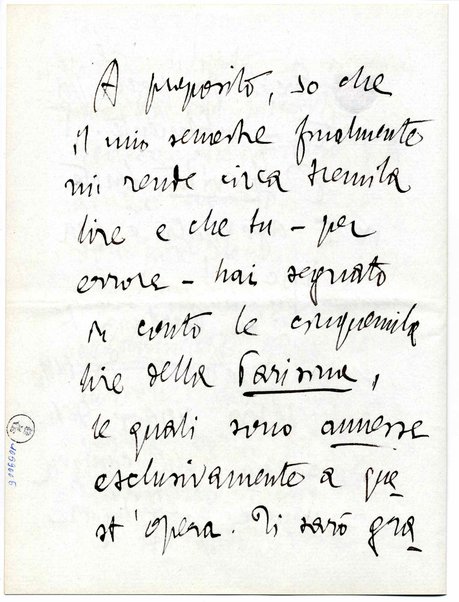 A proposito, so che
il mio semestre finalmente
mi rende circa tremila
lire e che tu – per
errore – hai segnato
in conto le cinquemila
lire della Parisina,
le quali sono annesse
esclusivamente a que
st'opera. Ti sarò gra